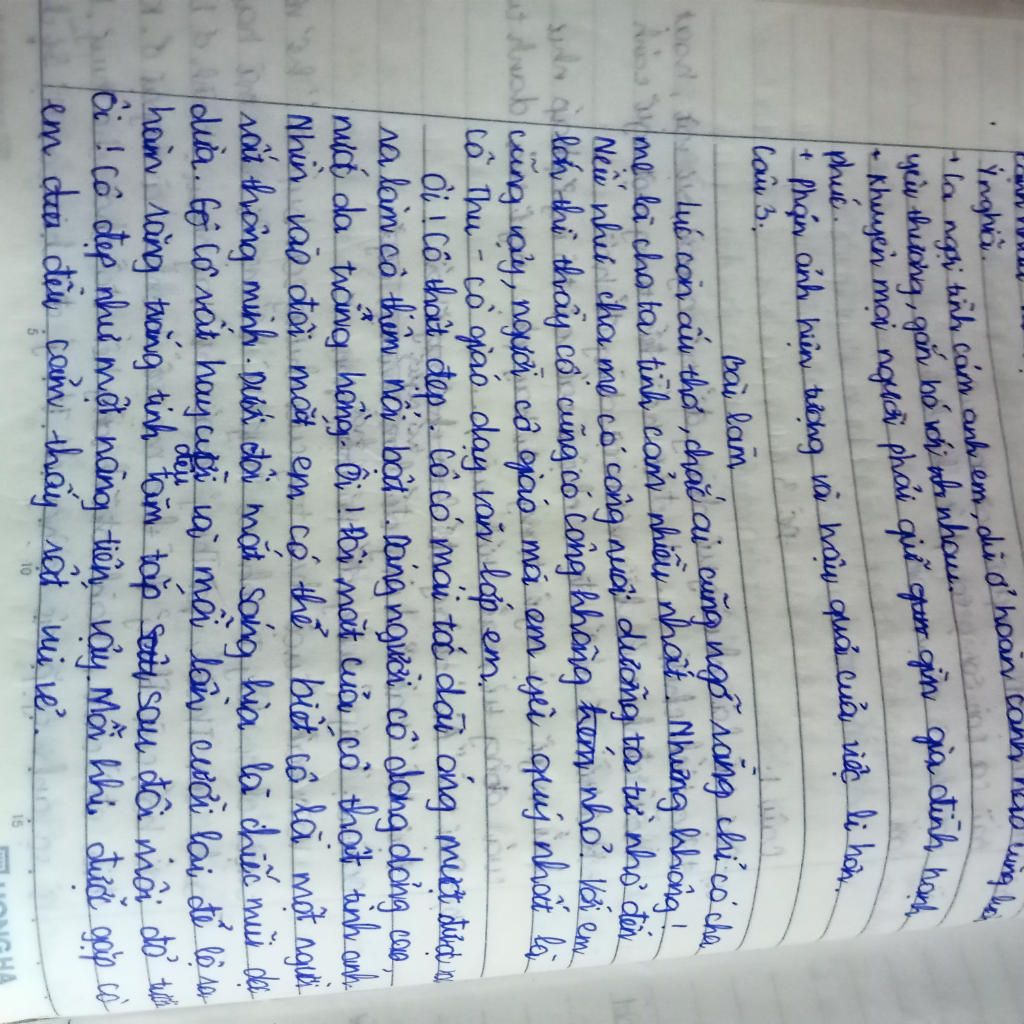 Ý nghĩa.
+ Ca ngợi tình cảm anh em, dù ở hoàn cảnh nào cũng
yêu thương, gắn bó với nhau.
+ Khuyên mọi người phải giữ gìn gia đình hạnh
phúc.
+ Phản ánh hiện tượng và hậu quả của việc li hôn.
Câu 3:
Bài làm
từ còn ấu thơ, chắc ai cũng nghĩ rằng chỉ có cha
mẹ là cho ta tình cảm nhiều nhất. Nhưng không!
Nếu như cha mẹ có công nuôi dưỡng ta từ nhỏ đến
lớn thì thầy cô cũng có công không nhỏ. Với em
cũng vậy, người cô giáo mà em yêu quý nhất là
cô Thu - cô giáo dạy văn lớp em.
Ôi! Cô thật đẹp. Cô có mái tóc dài óng mượt được
ra làm cô thêm nổi bật. Dáng người cô dong dỏng cao,
nước da trắng hồng. Ôi! Đôi mắt của cô thật tinh anh.
Nhìn vào đôi mắt em có thể biết cô là một người
rất thông minh. Dưới đôi mắt sáng kia là chiếc mũi dọc
dừa. Cô rất hay cười và mỗi lần cười lại để lộ ra
hàm răng trắng tinh đều tăm tắp sau đôi môi đỏ tươi
Ôi! Cô đẹp như một nàng tiên vậy. Mỗi khi được gặp cô
em đều cảm thấy rất vui vẻ.
5
10
15
HONG HA